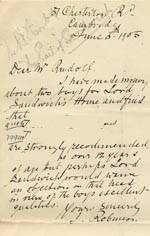 51 Chesterton Rd.
Cambridge
June 5th 1905
Dear Mr Rudolf
I have made inquiry
about two boys for Lord
Sandwich's Home and find
that
are strongly recommended
is over 12 years
of age but perhaps Lord
Sandwich would waive
an objection on that head
in view of the boy's excellent
qualities.
Yours sincerely
J. Robinson